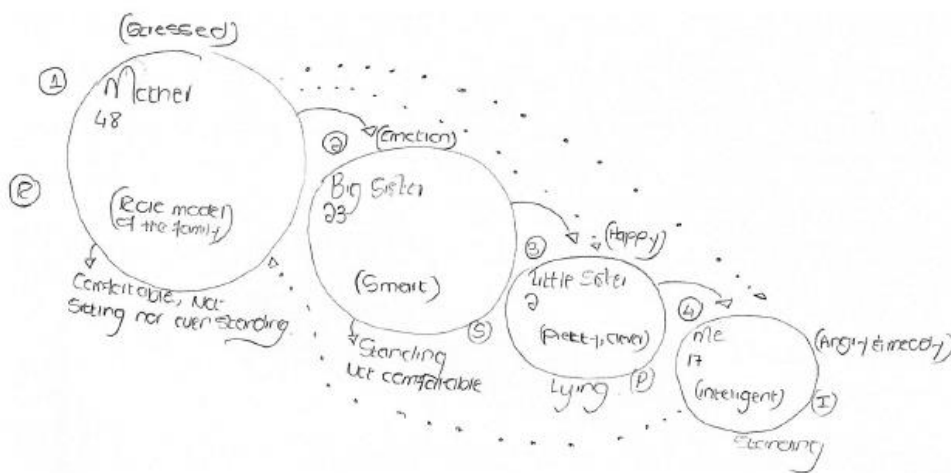 (Stressed)
1
Mother
48
R
(Role model
of the family)
Comfortable, Not
Sitting nor even Standing
2
(Emotion)
Big Sister
23
(Smart)
S
Standing
Not comfortable
3
(Happy)
Little Sister
2
(Pretty, Clever)
P
Lying
4
Me
17
(inteligent)
I
(Angry & moody)
Standing